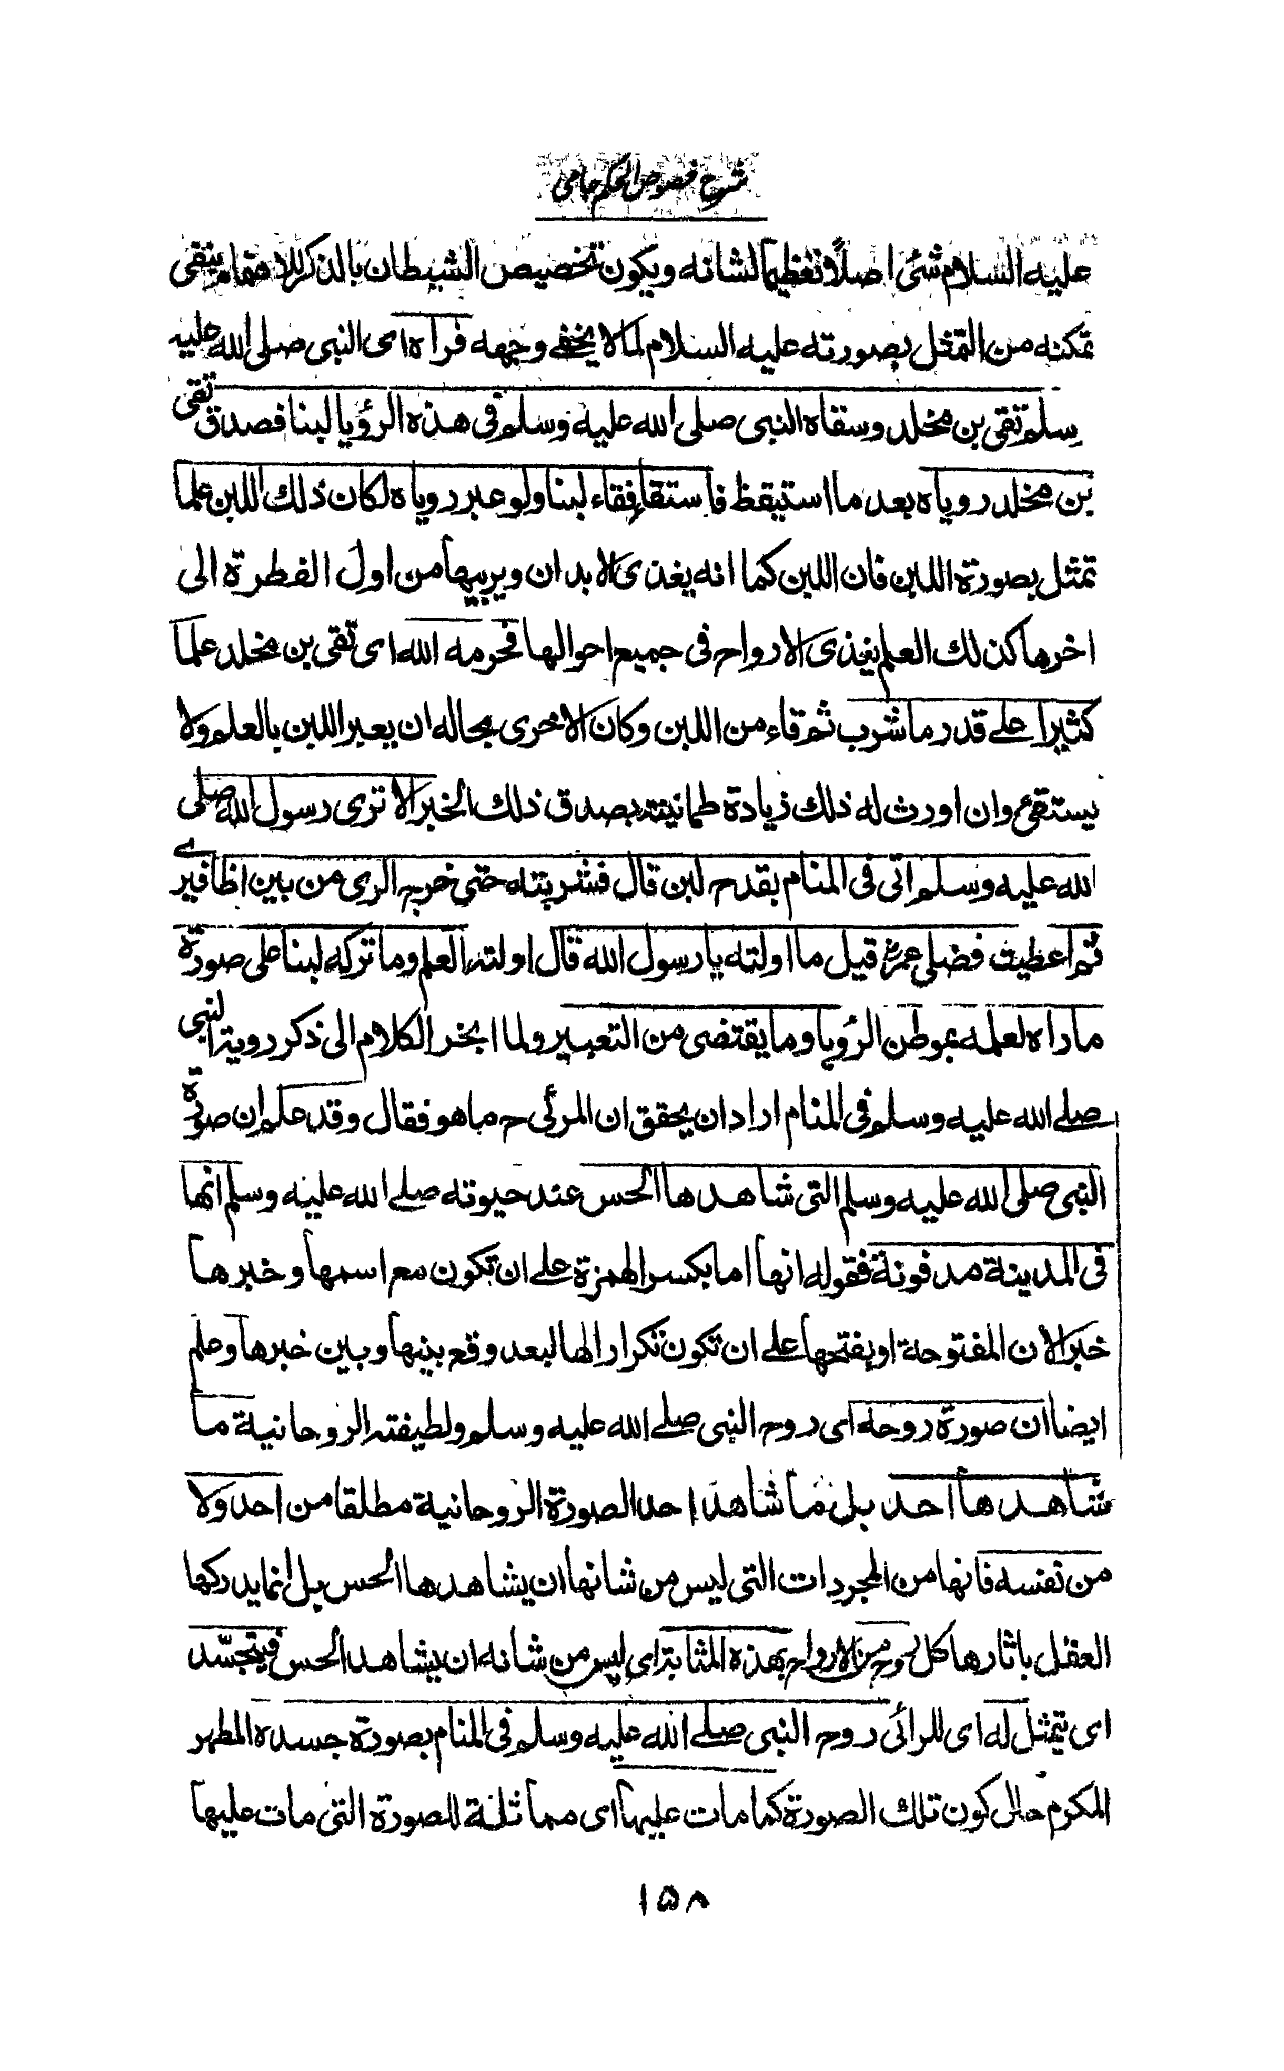 شرح فصوص الحكم جامى
عليه السلام شئ اصلًا تعظيما لشانه ويكون تخصيص الشيطان بالذكر للاهتمام بنفى
تمكنه من التمثل بصورته عليه السلام لما لا يخفى وجهه فراه اى النبى صلى الله عليه
سلم تقى بن مخلد وسقاه النبى صلى الله عليه وسلم فى هذه الرؤيا لبنا فصدق تقى
بن مخلد روياه بعد ما استيقظ فاستقاء فقاء لبنا ولو عبر روياه لكان ذلك اللبن علما
تمثل بصورة اللبن فان اللبن كما انه يغذى الابدان ويربيها من اول الفطرة الى
اخرها كذلك العلم يغذى الارواح فى جميع احوالها فحرمه الله اى تقى بن مخلد علما
كثيرا على قدر ما شرب ثم قاء من اللبن وكان الاحرى بحاله ان يعبر اللبن بالعلم ولا
يستقىء وان اورث له ذلك زيادة طمانيته بصدق ذلك الخبر الا ترى رسول الله صلى
الله عليه وسلم اتى فى المنام بقدح لبن قال فشربته حتى خرج الرى من بين اظافيرى
ثم اعطيت فضلى عمر قيل ما اولته يا رسول الله قال اولته العلم وما تركه لبنا على صورة
ماراه لعلمه بموطن الرؤيا وما يقتضى من التعبير ولما انجر الكلام الى ذكر روية النبى
صلى الله عليه وسلم فى المنام اراد ان يحقق ان المرئى ح ما هو فقال وقد علم ان صورة
النبى صلى الله عليه وسلم التى شاهدها الحس عند حيوته صلى الله عليه وسلم انها
فى المدينة مدفونة فقوله انها اما بكسر الهمزة على ان تكون مع اسمها وخبرها
خبر الان المفتوحة او بفتحها على ان تكون تكرارا لها لبعد وقع بينها وبين خبرها وعلم
ايضا ان صورة روحه اى روح النبى صلى الله عليه وسلم ولطيفته الروحانية ما
شاهدها احد بل ما شاهد احد الصورة الروحانية مطلقا من احد ولا
من نفسه فانها من المجردات التى ليس من شانها ان يشاهدها الحس بل انما يدركها
العقل باثارها كل روح من الارواح بهذه المثابة اى ليس من شانه ان يشاهد الحس فيتجسّد
اى يتمثل له اى للرائى روح النبى صلى الله عليه وسلم فى المنام بصورة جسده المطهر
المكرم حال كون تلك الصورة كما مات عليها اى مماثلة للصورة التى مات عليها
١٥٨